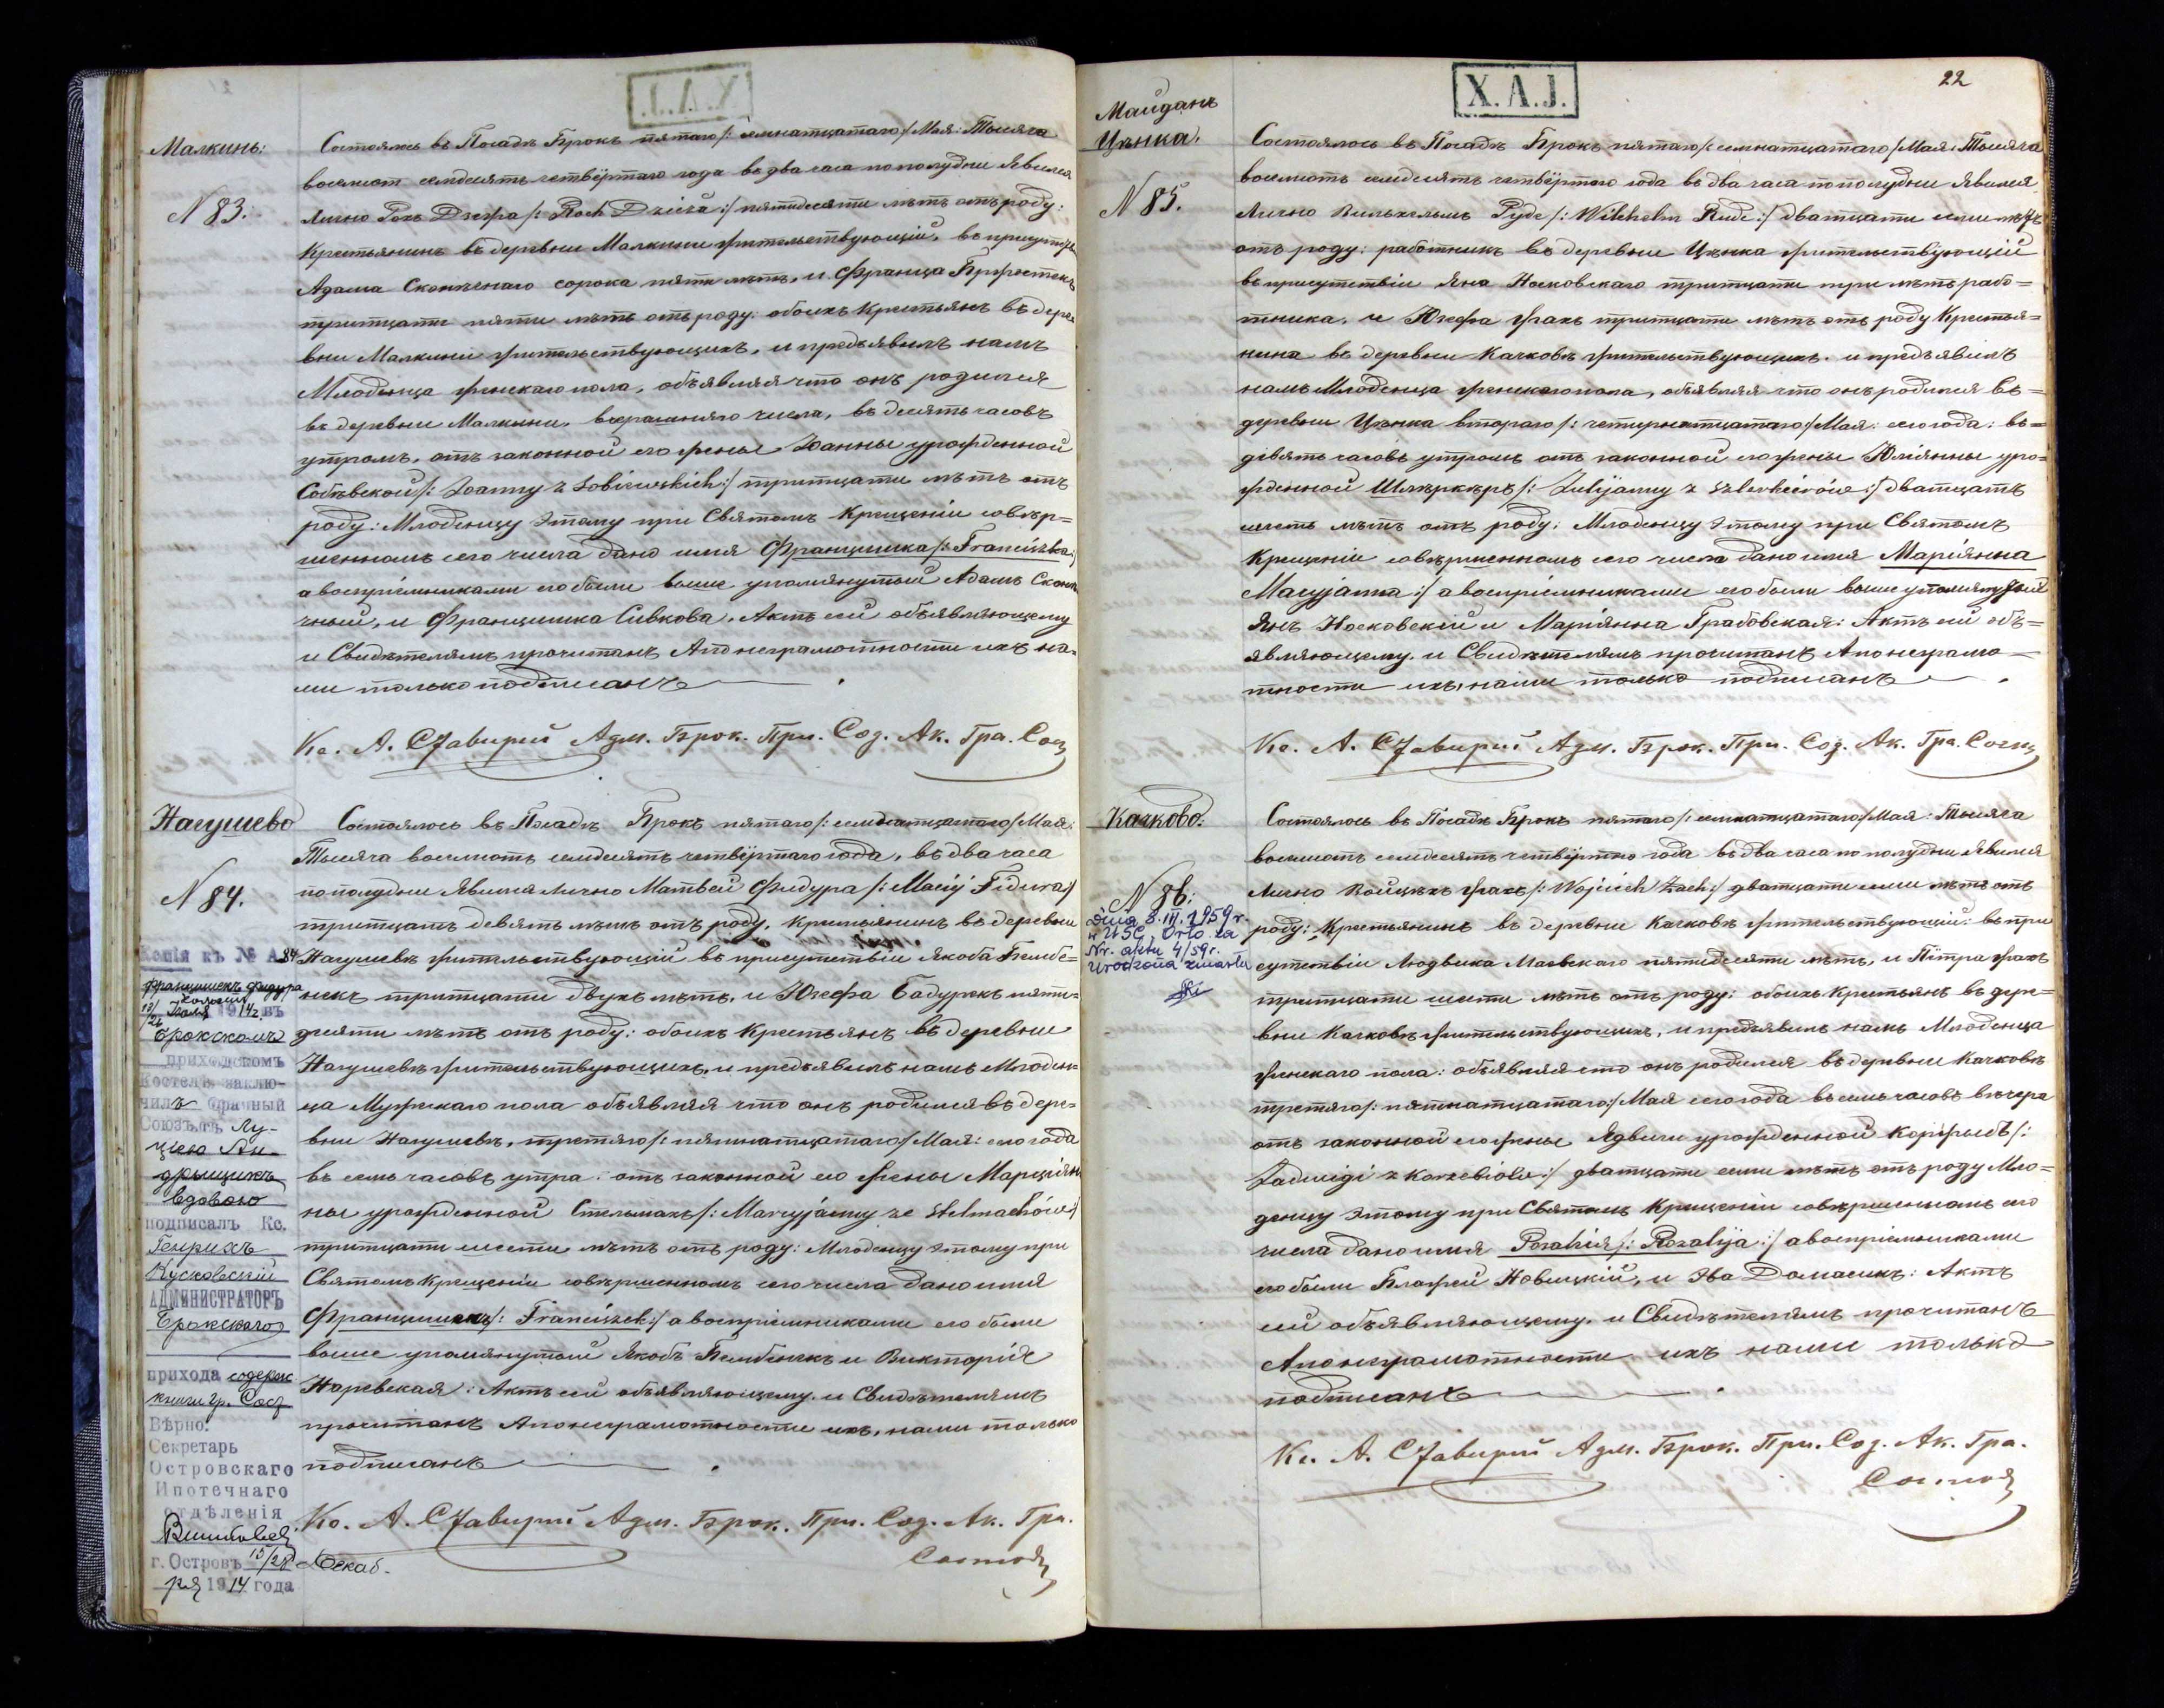 Малкинь:
N 83.
Состоялось въ Посадѣ Брокъ пятаго /: семнатцатаго :/ Мая: Тысяча
восемсот семдесять четвёртаго года въ два часа по полудни Явился
лично Рохъ Дзежа /: Roch Dzieża :/ пятидесяти лѣтъ отъ роду:
Крестьянинъ въ деревни Малкини жительствующій, въ присутствіи
Адама Сконечнаго сорока пяти лѣтъ, и Франца Бржостекъ
тритцати пяти лѣтъ отъ роду: обоихъ Крестьянъ въ дере
вни Малкини жительствующихъ, и предъявилъ намъ
Младенца женскаго пола, объявляя что онъ родился
въ деревни Малкини, вчерашняго числа, въ десять часовъ
утромъ, отъ законной его жены Іоанны урожденной
Собѣвской /: Joanny z Sobiewskich :/ тритцати лѣтъ отъ
роду: Младенцу этому при Святомъ Крещеніи совѣр=
шенномъ сего числа дано имя Францишка /: Franciszka :/
а воспріемниками его были выше упомянутый Адамъ Сконе
чный, и Францишка Сивкова, Актъ сей объявляющему
и Свидѣтелямъ прочитанъ Апо неграмотности ихъ на=
ми только подписанъ
Кс. А. Адм. Брок. При. Сод. Ак. Гра. Сос
Нагушево
N 84.
Состоялось въ Посадѣ Брокъ пятаго /: семнатцатаго :/ Мая:
Тысяча восемсотъ семдесять четвёртаго года, въ два часа
по полудни Явился лично Матвей Фидура /: Maciej Fidura :/
тритцать девять лѣтъ отъ роду, крестьянинъ въ деревни
Нагушевѣ жительствующій въ присутствіи Якоба Бембе=
некъ тритцати двухъ лѣтъ, и Юзефа Бадурекъ пяти=
десяти лѣтъ отъ роду: обоихъ Крестьянъ въ деревни
Нагушевѣ жительствующихъ, и предъявилъ намъ Младен=
ца Мужескаго пола объявляя что онъ родился въ дере=
вни Нагушевѣ, третяго /: пятнатцатаго :/ Мая: сего года
въ семь часовъ утра: отъ законной его жены Марціян
ны урожденной Стельмахъ /: Marcyjanny ze Stelmachów :/
тритцати шести лѣтъ отъ роду: Младенцу этому при
Святомъ Крещеніи совѣршенномъ сего числа дано имя
Францишекъ /: Franciszek :/ а воспріемниками его были
выше упомянутый Якобъ Бембенекъ и Викторія
Наревская: Актъ сей объявляющему. и Свидѣтелямъ
прочитанъ Апо неграмотности ихъ, нами только
подписанъ
Кс. А. Адм. Брок. При. Сод. Ак. Гра.
Состоя
Копія къ № А84
Францишекъ Фидура
13/26 1914 г. въ
Брокскомъ
приходскомъ
Костелѣ заклю-
чилъ брачный
Союзъ съ Лу-
цією Ан-
дрыщикъ
вдовою
подписалъ Кс.
Генрихъ
Кусковскій
АДМИНИСТРАТОРЪ
Брокскаго
прихода содерж
книги гр. Сост
Вѣрно:
Секретарь
Островскаго
Ипотечнаго
отдѣленія
г. Островъ 15/28 Декаб.
ря 1914 года
X.A.J.
22
Майданъ
Цѣнка.
N 85.
Состоялось въ Посадѣ Брокъ пятаго /: семнатцатаго :/ Мая: Тысяча
восемсотъ семдесять четвёртаго года въ два часа по полудни Явился
Лично Вильгельмъ Руде /: Wilchelm Rude :/ дватцати семи лѣтъ
отъ роду: работникъ въ деревни Цѣнка жительствующій
въ присутствіи Яна Носковскаго тритцати три лѣтъ рабо=
тника, и Юзефа Жахъ тритцати лѣтъ отъ роду Крестья=
нина въ деревни Качковѣ жительствующихъ. и предъявилъ
намъ Младенца женскаго пола, объявляя что онъ родился въ=
деревни Цѣнка втораго /: четырнатцатаго :/ Мая: сего года: въ=
девять часовъ утромъ отъ законной его жены Юліянны уро=
жденной Шлѣркѣръ /: Julijanny z Szlerkierów :/ дватцать
шесть лѣтъ отъ роду: Младенцу этому при Святомъ
Крещеніи совѣршенномъ сего числа дано имя Маріянна
Maryjanna :/ а воспріемниками его были выше упомянутый
Янъ Носковскій и Маріянна Грабовская: Актъ сей объ=
являющему. и Свидѣтелямъ прочитанъ Апо неграмо=
тности ихъ, нами только подписанъ
Кс. А. Адм. Брок. При. Сод. Ак. Гра. Состо
Качково.
N 86:
Dnia 8.III.1959 r.
w USC
Nr. aktu 4/59 r.
Urodzona zmarła
Состоялось въ Посадѣ Брокъ пятаго /: семнатцатаго :/ Мая: Тысяча
восемсотъ семдесять четвёртаго года въ два часа по полудни Явился
Лично Войцѣхъ Жахъ /: Wojciech Żach :/ дватцати семи лѣтъ отъ
роду: Крестьянинъ въ деревни Качковѣ жительствующій: въ при
сутствіи Людвика Маевскаго пятидесяти лѣтъ, и Пётра Жахъ
тритцати шести лѣтъ отъ роду: обоихъ Крестьянъ въ дере=
вни Качковѣ жительствующихъ, и предъявилъ намъ Младенца
женскаго пола: объявляя что онъ родился въ деревни Качковѣ
третяго /: пятнатцатаго :/ Мая сего года въ семь часовъ вѣчера
отъ законной его жены Ядвиги урожденной /:
Jadwigi z :/ дватцати семи лѣтъ отъ роду Мла=
денцу этому при Святомъ Крещеніи совѣршенномъ сего
числа дано имя Розалія /: Rozalija :/ а воспріемниками
его были Блажей Новицкій, и Эва Домасикъ: Актъ
сей объявляющему. и Свидѣтелямъ прочитанъ
Апо неграмотности ихъ нами только
подписанъ
Кс. А. Адм. Брок. При. Сод. Ак. Гра.
Состоя